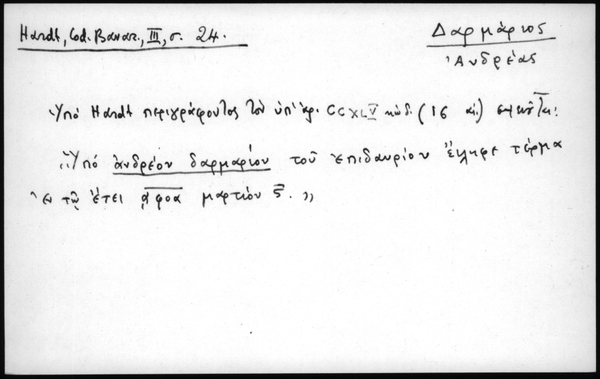 Hardt, Cod. Bavar., III, σ. 24.
Δαρμάριος
Ἀνδρέας
Ὑπὸ Hardt περιγράφοντος τὸν ὑπ' ἀρ. CCXLV κώδ. (16 αἰ.)
"Ὑπὸ ἀνδρέου δαρμαρίου τοῦ ἐπιδαυρίου εἴληφε τέρμα
ἐν τῷ ἔτει ᾳφοα μαρτίου ς. "